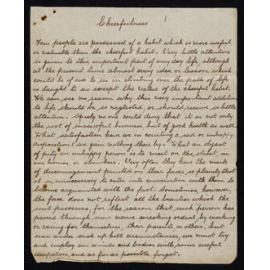 Cheerfulness
Few people are possessed of a habit which is more useful
or valuable than the cheerful habit. Very little attention
is given to this important part of every day life, although
at the present time almost every idea or lesson which
could be of use to us in climbing over the path of life
is taught to us except the value of the cheerful habit.
We can see no reason why this very important addition
to life should be so neglected or should receive so little
attention. Surely no one could deny that it is not only
the root of successful homes but of good health as well.
What satisfaction have we in courting a sad or unhappy
disposition? we gain nothing by it. What an object
of pity an unhappy person is to meet on the street, in
our homes, or elsewhere. Very often they bear the mark
of discouragement printed on their faces so plainly that
it is unnecessary to enter into conversation with them to
become acquainted with the fact. Sometimes, however,
the face does not reflect all the beauties which the
soul possesses, for the reason that such person has
passed through many nerve wrecking ordeals by working
or caring for themselves, their parents or others, but
even under such up hill circumstances, we must try
and employ our minds and bodies with some useful
occupation and as far as possible forget.